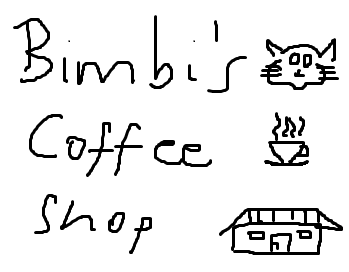 Bimbi's
Coffee
Shop